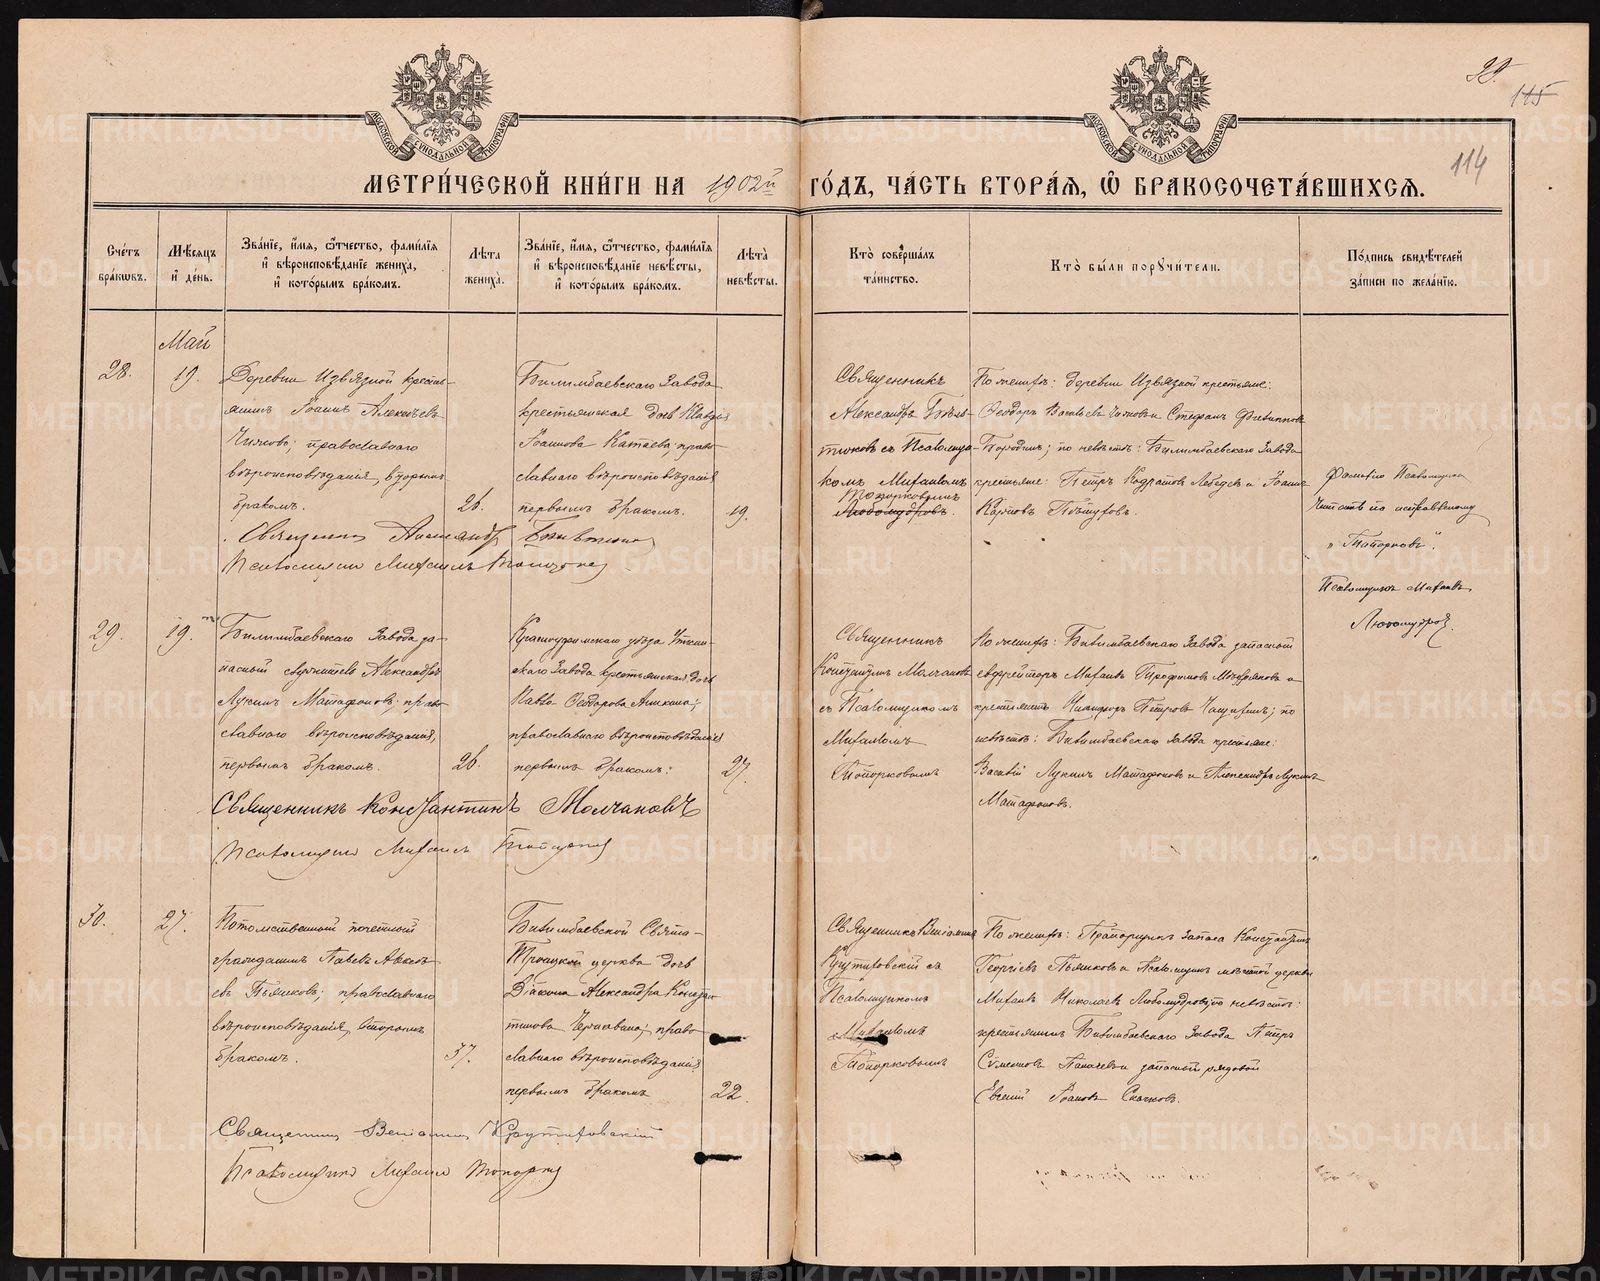 МЕТРИ́ЧЕСКОЙ КНИ́ГИ НА 1902й ГО́ДЪ, ЧА́СТЬ ВТОРА́Я, Ѿ БРАКОСОЧЕТА́ВШИХСЯ.
115
114
Сче́тъ бра́ковъ.
Мѣ́сяцъ и҆ де́нь.
Зва́нїе, и҆́мя, ѻ҆́тчество, фами́лїя и҆ вѣроисповѣ́данїе жениха̀, и҆ кото́рымъ бра́комъ.
Лѣ́та жениха̀.
Зва́нїе, и҆́мя, ѻ҆́тчество, фами́лїя и҆ вѣроисповѣ́данїе невѣ́сты, и҆ кото́рымъ бра́комъ.
Лѣ́та невѣ́сты.
Кто̀ соверша́лъ та́инство.
Кто̀ бы́ли порꙋчи́тели.
По́дпись свидѣ́телей за́писи по жела́нїю.
Май
28.
19.
Деревни Извязной кресть-
янинъ Іоаннъ Алексѣевъ
православнаго
вѣроисповѣданія, вторымъ
бракомъ.
26.
Билимбаевскаго Завода
крестьянская дочь Клавдія
Іоаннова Катаева, право-
славнаго вѣроисповѣданія
первымъ бракомъ.
19.
Священникъ
Александръ
съ Псаломщи-
комъ Михаиломъ
Топорковымъ
Любомудровъ.
По женихѣ: деревни Извязной крестьяне:
Ѳеодоръ Васильевъ и Стефанъ Филипповъ
Бородинъ; по невѣстѣ: Билимбаевскаго Завода
крестьяне: Петръ Кодратовъ Лебедевъ и Іоаннъ
Карповъ Пѣшуровъ.
Фамилію Псаломщика
Читать по исправленному
„Топорковъ“.
Псаломщикъ Михаилъ
Любомудровъ.
Священникъ Александръ
Псаломщикъ Михаилъ Топорковъ
29.
19.
Билимбаевскаго Завода за-
пасный служитель Александръ
Лукинъ Матафоновъ, право-
славнаго вѣроисповѣданія,
первымъ бракомъ.
26.
Красноуфимскаго уѣзда Уткин-
скаго Завода крестьянская дочь
Павла Ѳеодорова
православнаго вѣроисповѣданія
первымъ бракомъ.
27.
Священникъ
Константинъ Молчановъ
съ Псаломщикомъ
Михаиломъ
Топорковымъ
По женихѣ: Билимбаевскаго Завода запасный
ефрейторъ Михаилъ Трофимовъ и
крестьянинъ Никифоръ Петровъ; по
невѣстѣ: Билимбаевскаго Завода крестьяне:
Василій Лукинъ Матафоновъ и Александръ Лукинъ
Матафоновъ.
Священникъ Константинъ Молчановъ
Псаломщикъ Михаилъ Топорковъ
30.
27.
Потомственный почетный
гражданинъ Павелъ
Пьянковъ; православнаго
вѣроисповѣданія, вторымъ
бракомъ.
37.
Билимбаевской Свято-
Троицкой церкви дочь
Діакона Александра Констан-
тинова право-
славнаго вѣроисповѣданія
первымъ бракомъ
22.
Священникъ Веніаминъ
Крутиховскій съ
Псаломщикомъ
Михаиломъ
Топорковымъ
По женихѣ: Прапорщикъ запаса Константинъ
Георгіевъ Пьянковъ и Псаломщикъ мѣстной церкви
Михаилъ Николаевъ Любомудровъ; по невѣстѣ:
крестьянинъ Билимбаевскаго Завода Петръ
Симеоновъ и запасный рядовой
Евгеній Іоановъ Скачковъ.
Священникъ Веніаминъ Крутиховскій
Псаломщикъ Михаилъ Топорковъ
METRIKI.GASO-URAL.RU